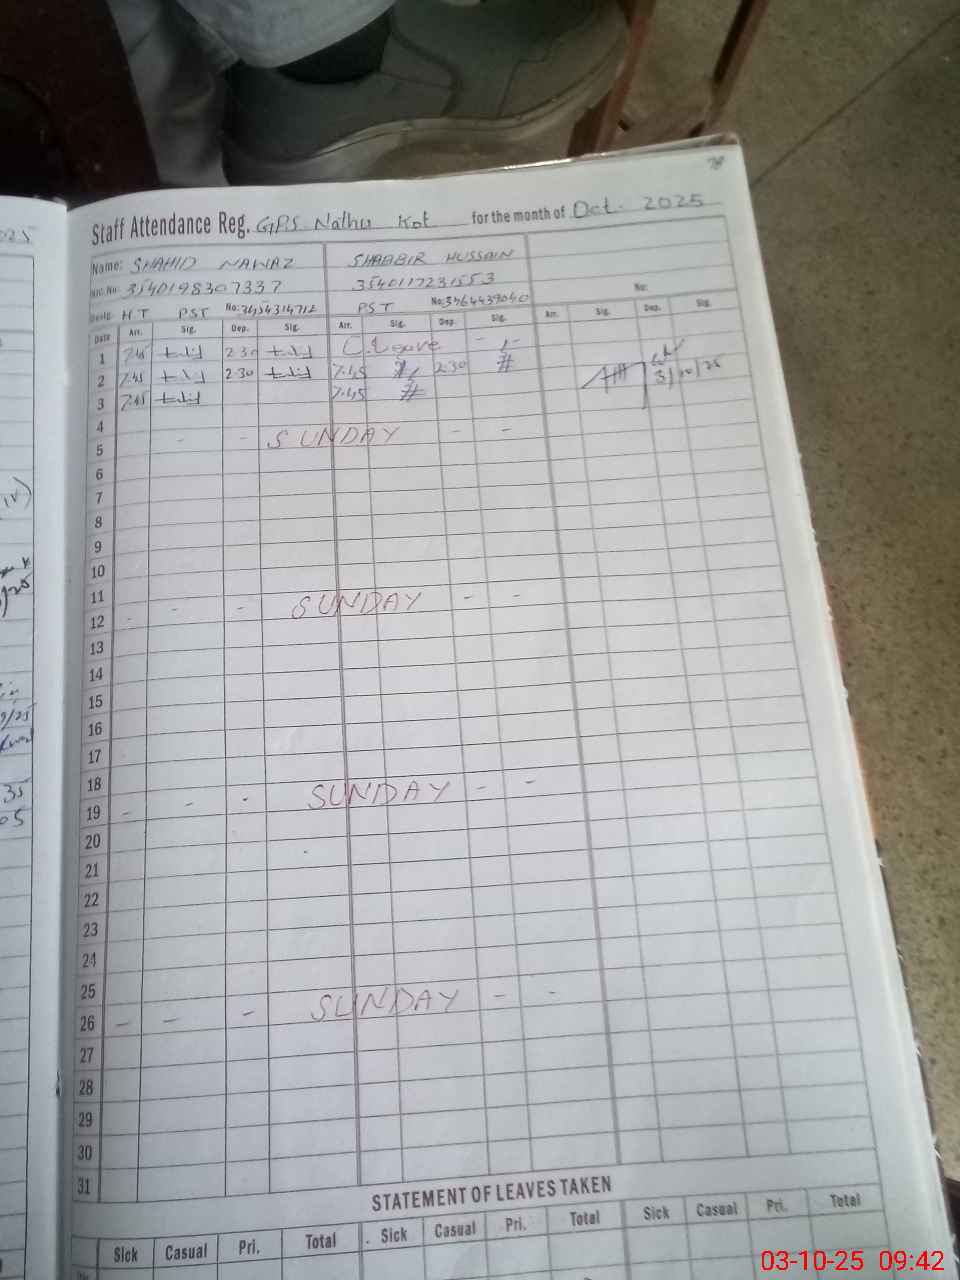 Staff Attendance Reg. GPS Nathu Kot for the month of Oct. 2025
Name: SHAHID NAWAZ SHABBIR HUSSAIN
NIC.No: 3540198307337 3540117231553 No:
Desig: H.T PST No: PST No:3464439040
Date Arr. Sig. Dep. Sig. Arr. Sig. Dep. Sig. Arr. Sig. Dep. Sig.
1 7.45 2.30 C.Leave - -
2 7.45 2.30 7.45 2.30
3 7.45 7.45 3/10/25
4
5 - - SUNDAY - -
6
7
8
9
10
11
12 - - - SUNDAY - -
13
14
15
16
17
18
19 - - - SUNDAY - -
20
21
22
23
24
25
26 - - - SUNDAY - -
27
28
29
30
31
STATEMENT OF LEAVES TAKEN
Sick Casual Pri. Total Sick Casual Pri. Total Sick Casual Pri. Total
03-10-25 09:42